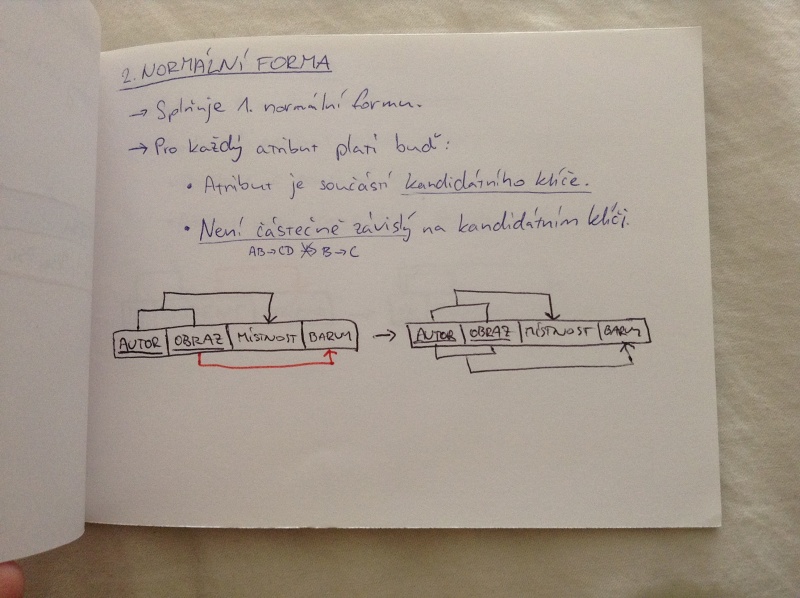 2. NORMÁLNÍ FORMA
→ Splňuje 1. normální formu.
→ Pro každý atribut platí buď:
• Atribut je součástí kandidátního klíče.
• Není částečně závislý na kandidátním klíči.
AB→CD B→C
AUTOR OBRAZ MÍSTNOST BARVY → AUTOR OBRAZ MÍSTNOST BARVY